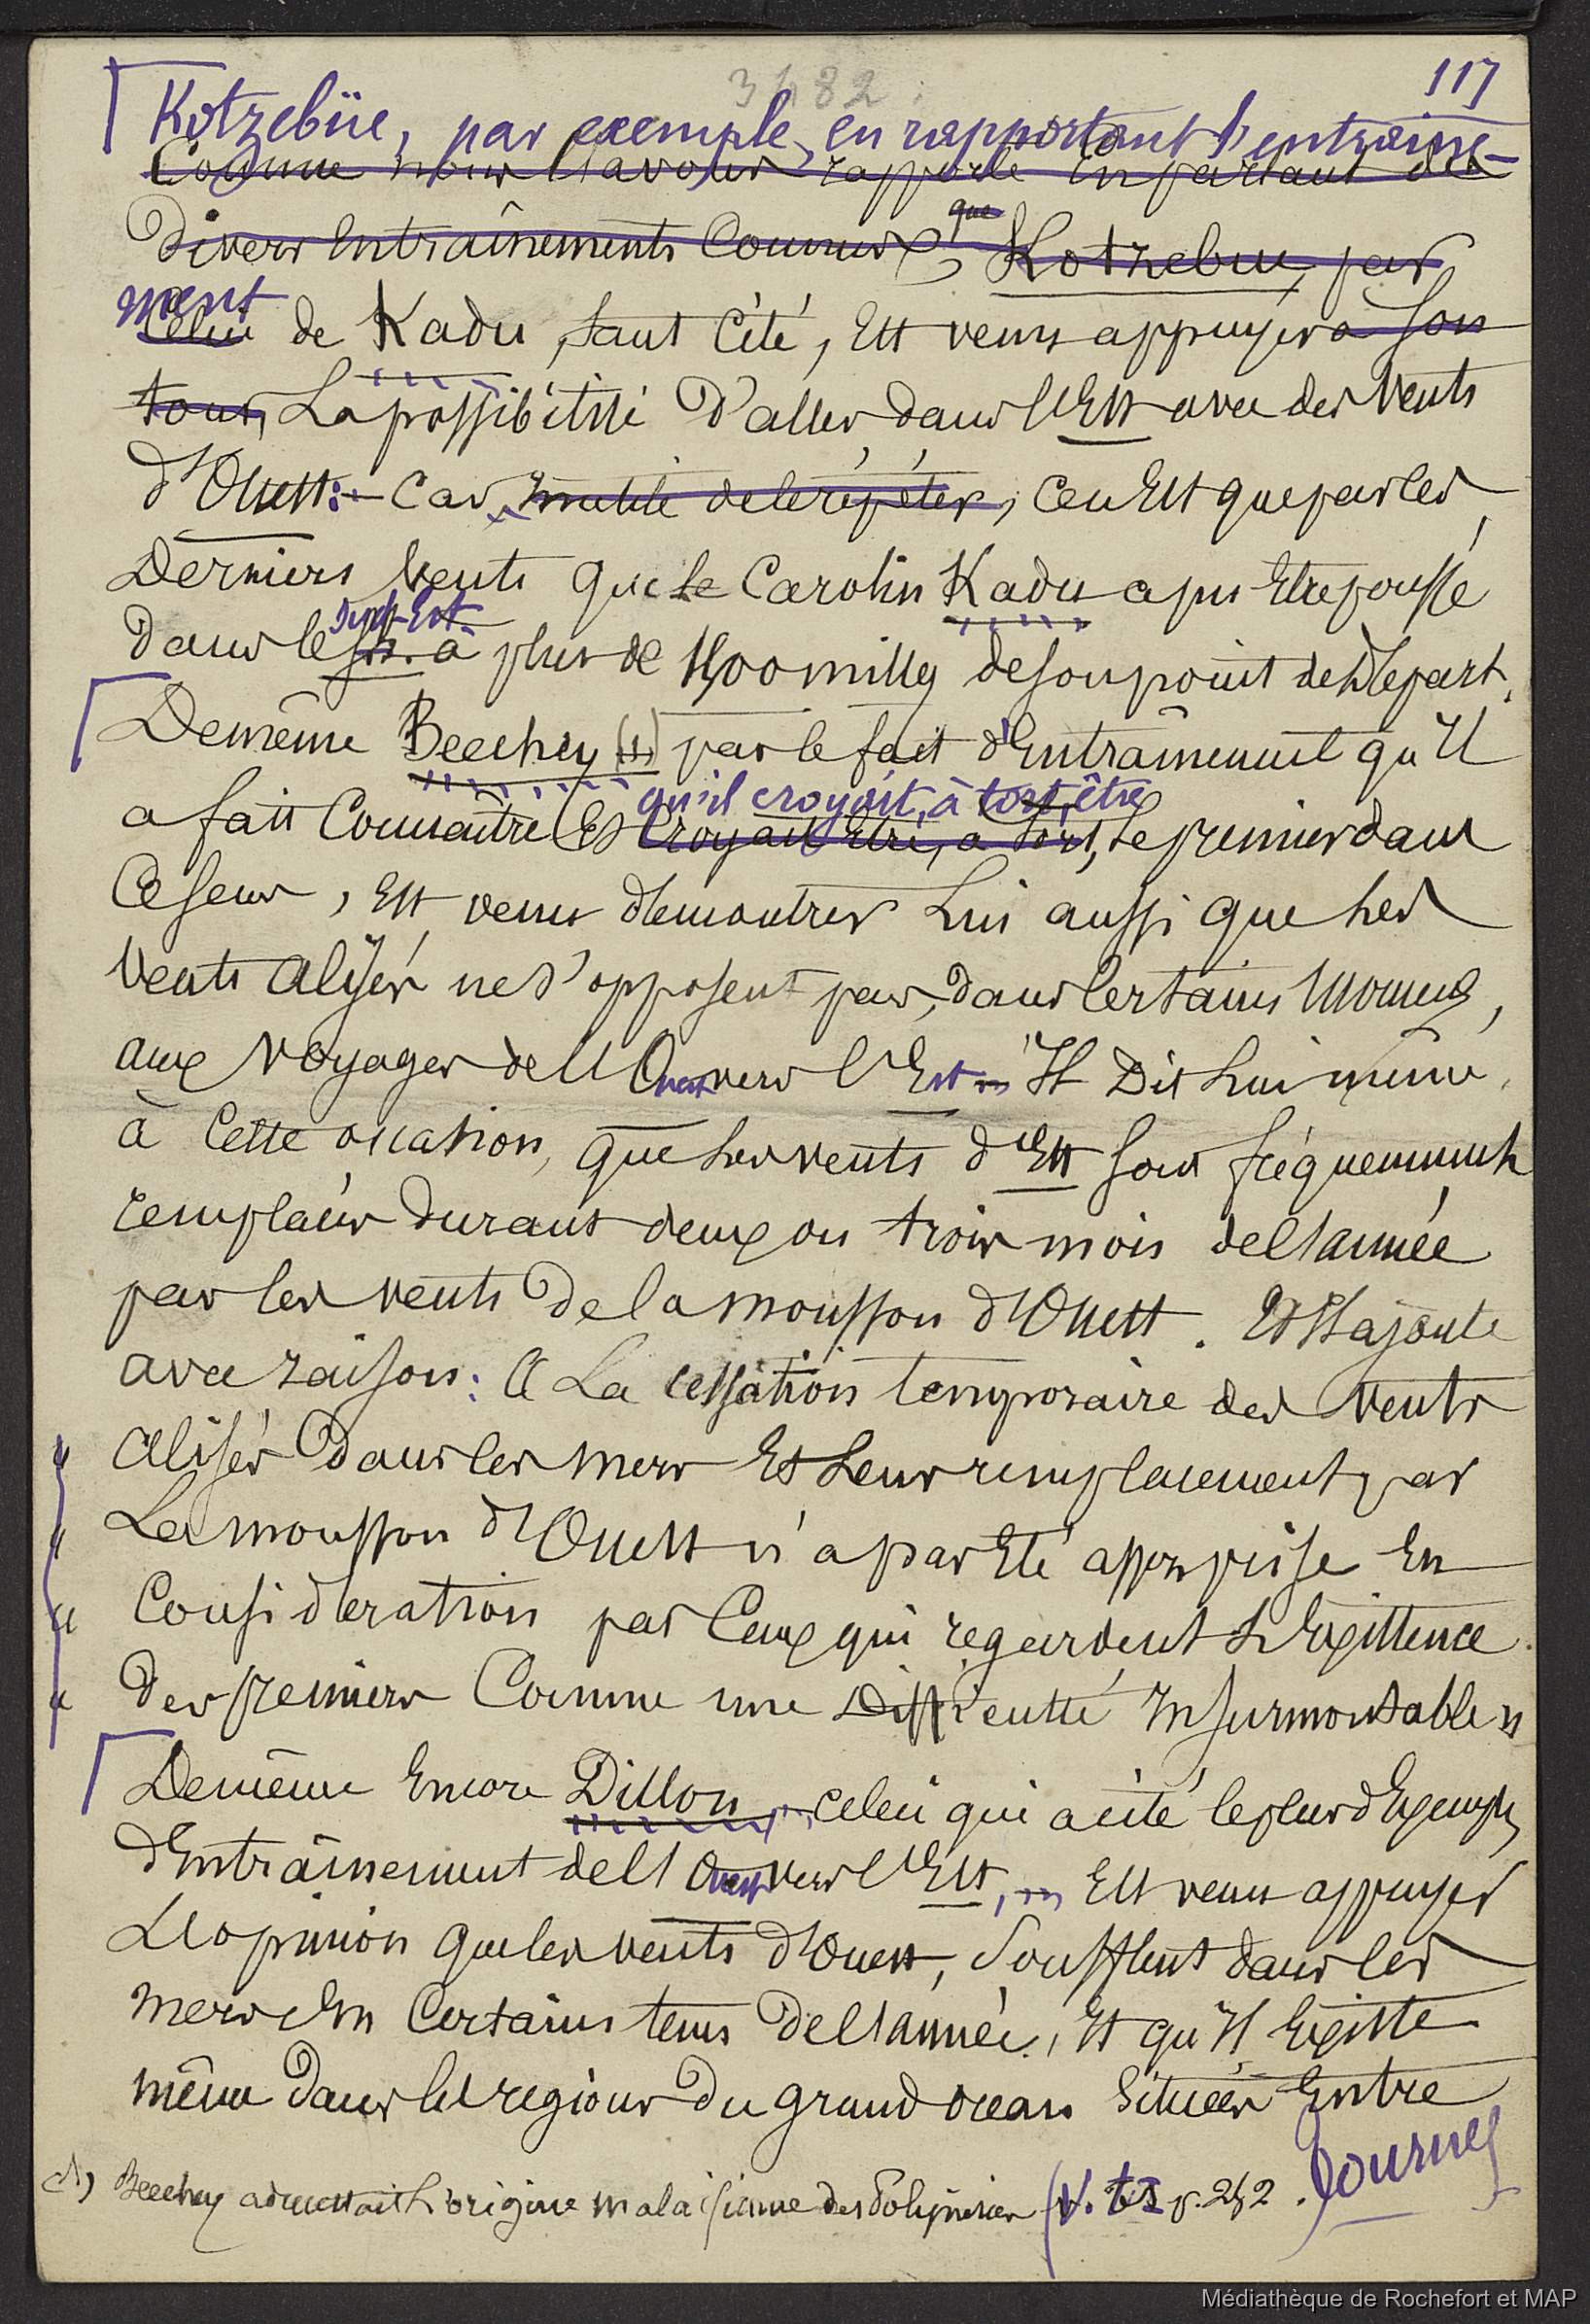 3482.
117
Kotzebüe, par exemple, en rapportant l'entraîne-
Comme nous l'avons rapporté en parlant des
divers entraînements connus, que Kotzebue, par
ment
celui de Kadu, tant cité, est venu appuyer à son
tour, la possibilité d'aller dans l'Est avec des vents
d'Ouest: - Car, inutile de le répéter, ce n'est que par les
derniers vents que le Carolin Kadu a pu être poussé
Sud-Est
dans le S.E. à plus de 1500 milles de son point de départ.
De même Beechey (1) par le fait d'entraînement qu'il
qu'il croyait, à tort, être
a fait connaître et croyait être, à tort, le premier dans
ce sens, est venu démontrer lui aussi que les
vents alisés ne s'opposent pas, dans certains moments,
aux voyages de l'Ouest vers l'Est - Il dit lui même,
à cette occasion, que les vents d'Est sont fréquemment
remplacés durant deux ou trois mois de l'année
par les vents de la mousson d'Ouest. Et il ajoute
avec raison: « La cessation temporaire des vents
« alisés dans les mers et leur remplacement par
« la mousson d'Ouest n'a pas été assez prise en
« considération par ceux qui regardent l'existence
« des premiers comme une difficulté insurmontable »
De même encore Dillon, celui qui a cité le plus d'exemples
d'entraînement de l'Ouest vers l'Est, est venu appuyer
l'opinion que les vents d'Ouest, soufflent dans les
mers en certains tems de l'année, et qu'il existe
même dans les régions du grand océan situées entre
(1) Beechey admettait l'origine malaisienne des Polynésiens (V. t. I p. 252. Tournez
Médiathèque de Rochefort et MAP